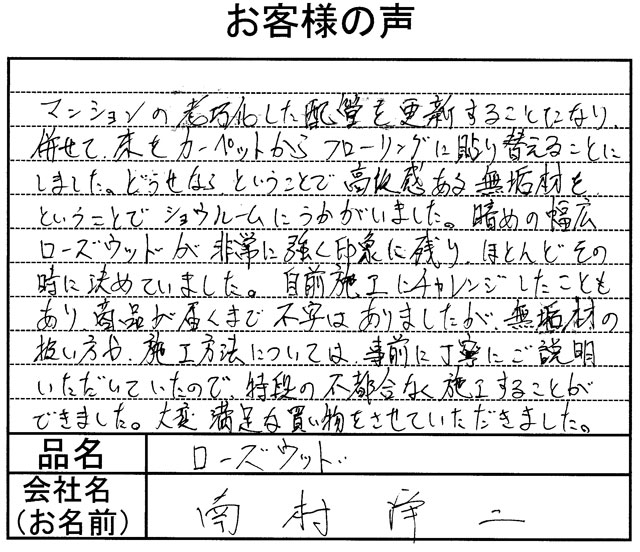 お客様の声
マンションの老朽化した配管を更新することになり、
併せて、床をカーペットからフローリングに貼り替えることに
しました。どうせならということで高級感ある無垢材を
ということでショウルームにうかがいました。暗めの幅広
ローズウッドが非常に強く印象に残り、ほとんどその
時に決めていました。自前施工にチャレンジしたことも
あり、商品が届くまで不安はありましたが、無垢材の
扱い方や、施工方法については、事前に丁寧にご説明
いただいていたので、特段の不都合なく施工することが
できました。大変満足な買い物をさせていただきました。
品名 ローズウッド
会社名
(お名前) 南村 洋二